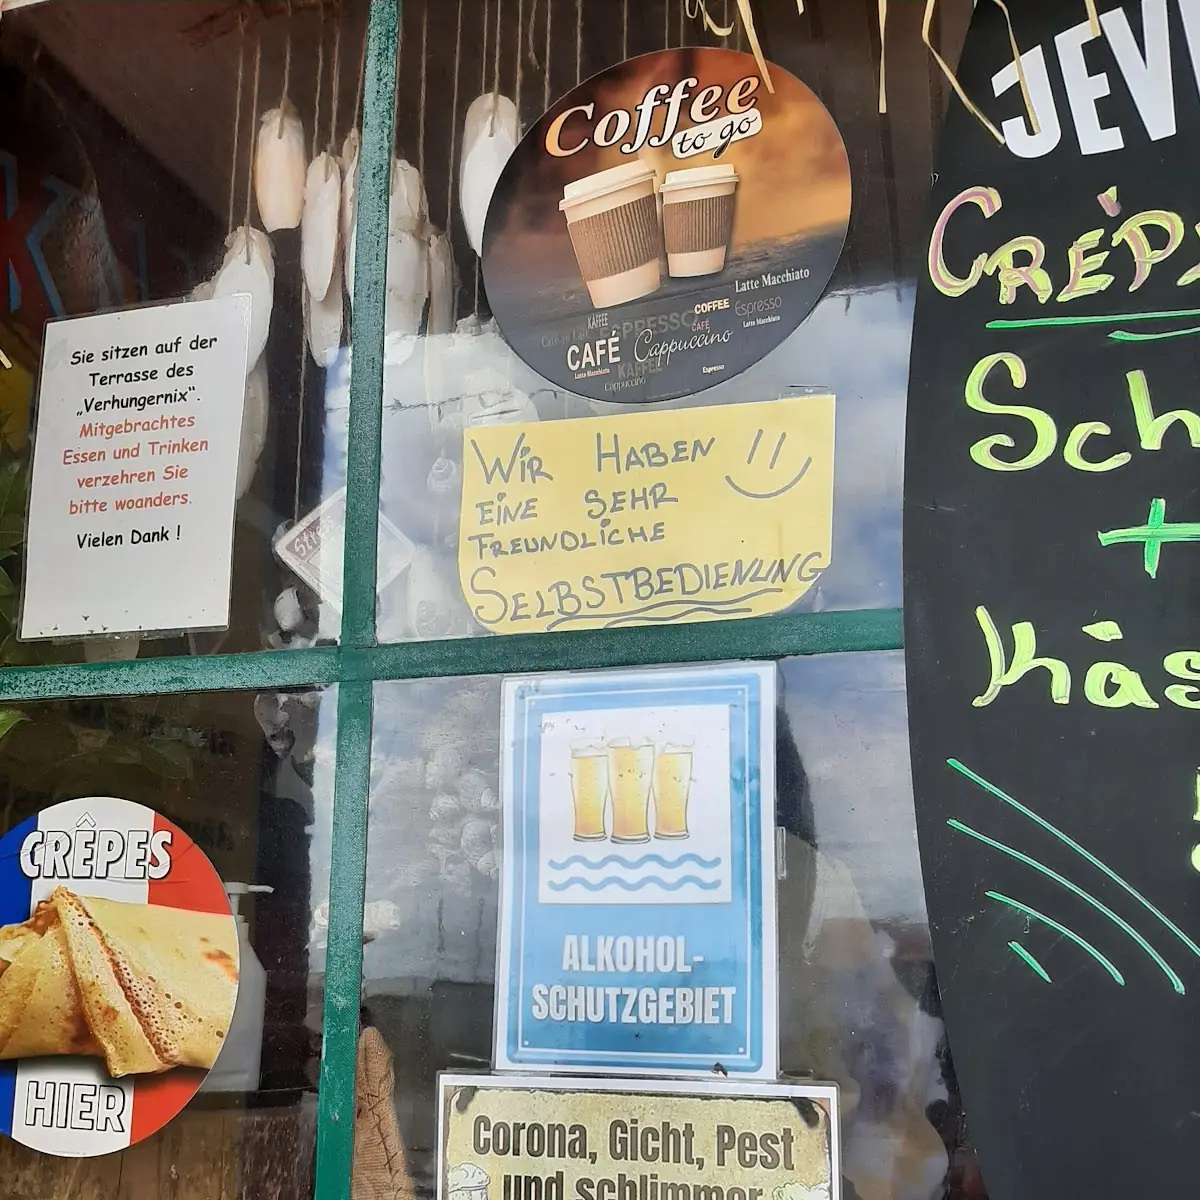 Sie sitzen auf der
Terrasse des
„Verhungernix“.
Mitgebrachtes
Essen und Trinken
verzehren Sie
bitte woanders.
Vielen Dank !
Coffee
to go
Latte Macchiato
KAFFEE
ESPRESSO
COFFEE
Espresso
CAFÉ
Cappuccino
CAFÉ
Latte Macchiato
Latte Macchiato
KAFFEE
Espresso
Cappuccino
WIR HABEN
EINE SEHR
FREUNDLICHE
SELBSTBEDIENUNG
JEV
CRÊP
Sch
+
Käs
CRÊPES
HIER
ALKOHOL-
SCHUTZGEBIET
Corona, Gicht, Pest
und schlimmer